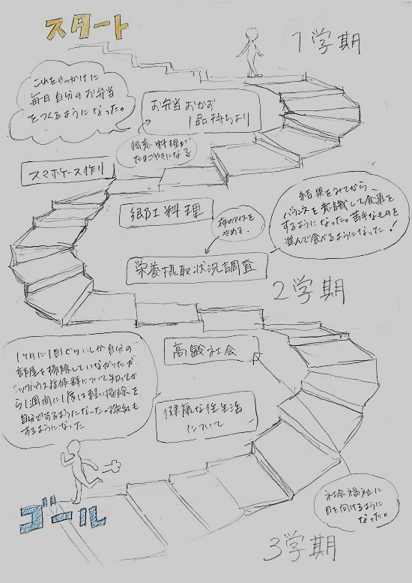 スタート
1学期
これをきっかけに
毎日自分のお弁当
をつくるようになった。
お弁当おかず
1品持ちより
得意料理が
たまごやきになる
スマホケース作り
郷土料理
栄養摂取状況調査
結果をみてから
バランスを意識して食事を
するようになった。苦手なものを
進んで食べるようになった!
2学期
高齢社会
1ヶ月に1回ぐらいしか自分の
部屋を掃除していなかったが
ら1週間に1度は軽い掃除を
自分でするようになった。換気も
するようになった
健康な住生活
について
社会福祉に
目を向けるように
なった。
ゴール
3学期